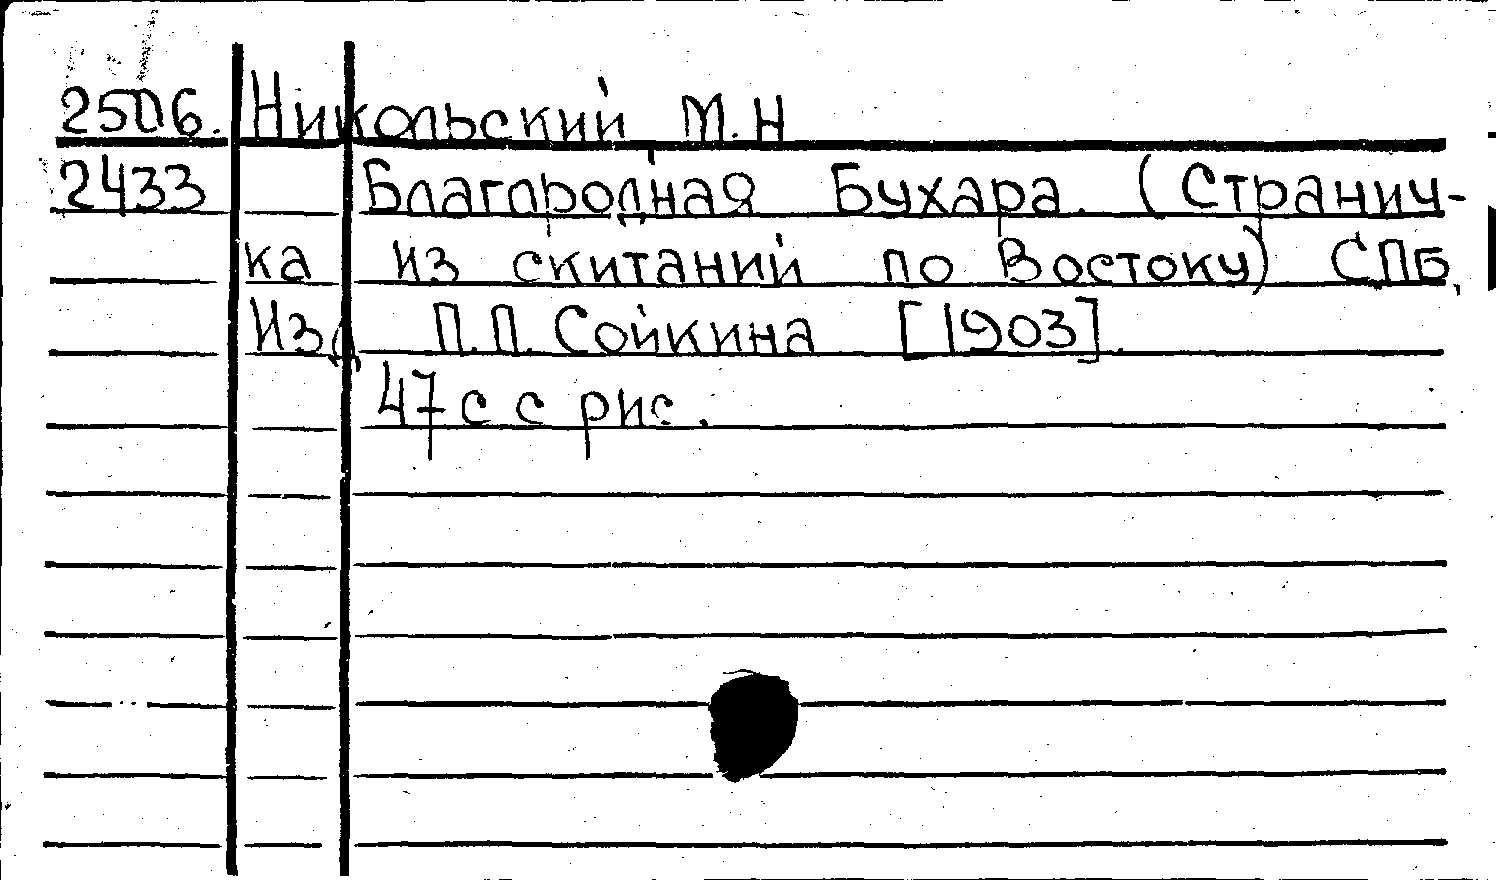 2506. Никольский М.Н
2433 Благородная Бухара. (Странич-
ка из скитаний по Востоку) СПБ,
Изд П.П. Сойкина [1903].
47 с с рис.